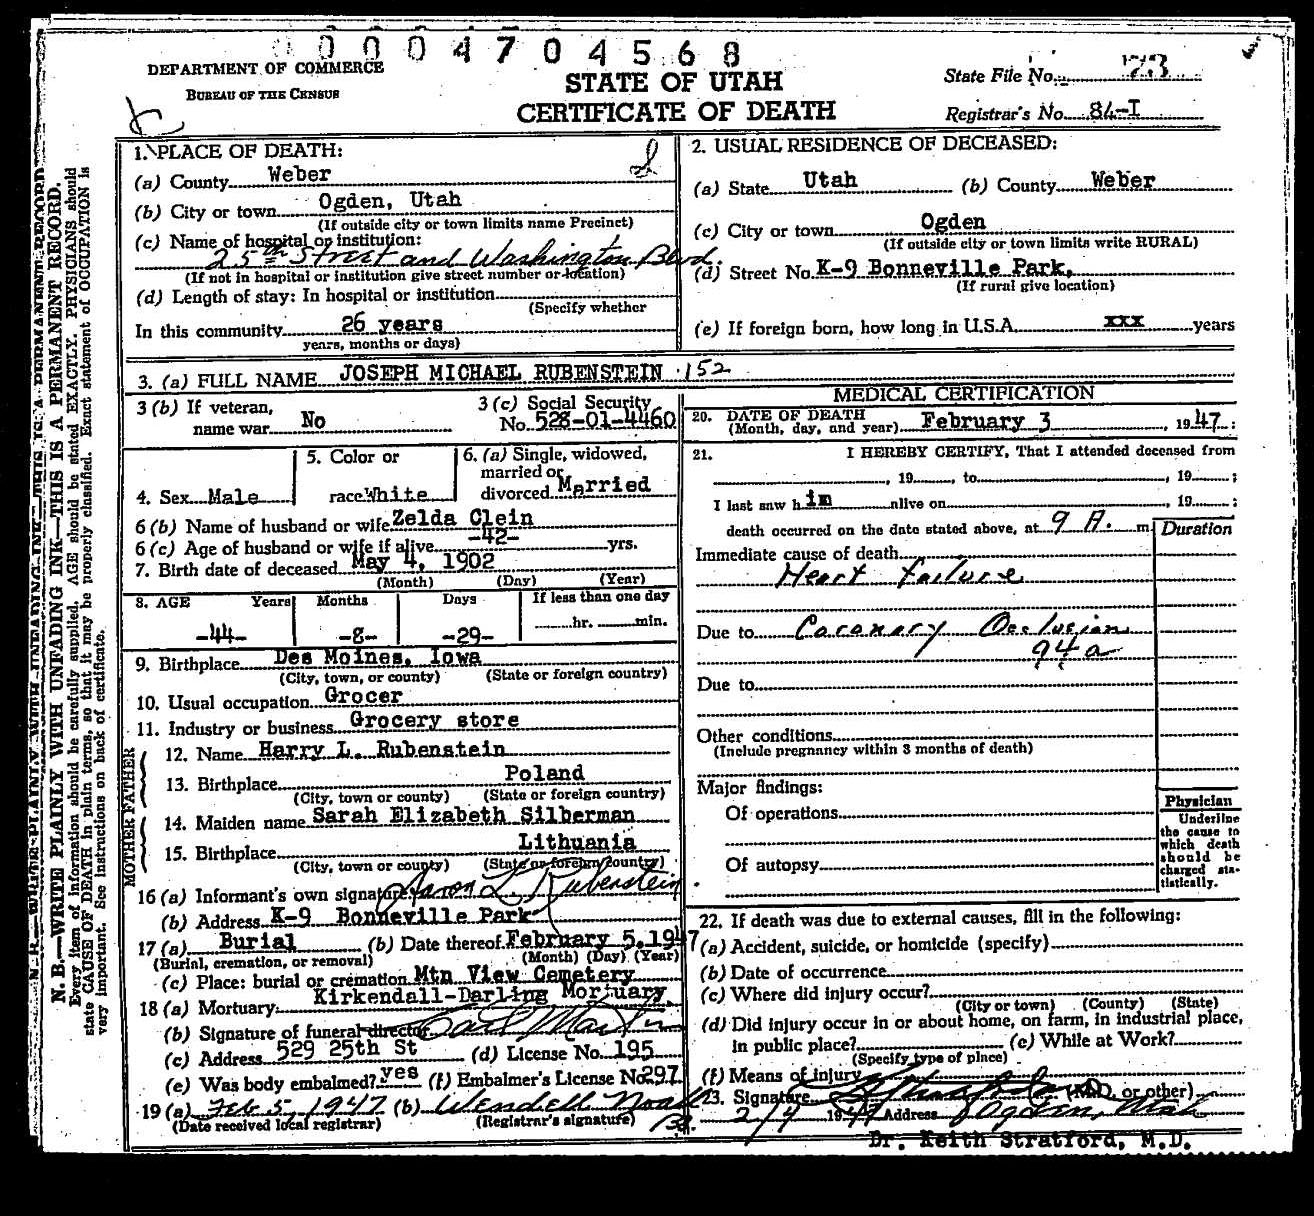 0 0 0 0 4 7 0 4 5 6 8
DEPARTMENT OF COMMERCE
BUREAU OF THE CENSUS
STATE OF UTAH
CERTIFICATE OF DEATH
State File No. 73
Registrar's No. 84-I
N. B.—WRITE PLAINLY WITH UNFADING INK—THIS IS A PERMANENT RECORD.
Every item of information should be carefully supplied. AGE should be stated EXACTLY. PHYSICIANS should
state CAUSE OF DEATH in plain terms, so that it may be properly classified. Exact statement of OCCUPATION is
very important. See instructions on back of certificate.
1. PLACE OF DEATH:
(a) County Weber
(b) City or town Ogden, Utah
(If outside city or town limits name Precinct)
(c) Name of hospital or institution:
25th Street and Washington Blvd.
(If not in hospital or institution give street number or location)
(d) Length of stay: In hospital or institution
(Specify whether
In this community 26 years
years, months or days)
2. USUAL RESIDENCE OF DECEASED:
(a) State Utah (b) County Weber
(c) City or town Ogden
(If outside city or town limits write RURAL)
(d) Street No. K-9 Bonneville Park,
(If rural give location)
(e) If foreign born, how long in U.S.A. xxx years
3. (a) FULL NAME JOSEPH MICHAEL RUBENSTEIN 152
3 (b) If veteran, name war No
3 (c) Social Security No. 528-01-4460
4. Sex Male
5. Color or race White
6. (a) Single, widowed, married or divorced Married
6 (b) Name of husband or wife Zelda Clein
6 (c) Age of husband or wife if alive -42- yrs.
7. Birth date of deceased May 4, 1902
(Month) (Day) (Year)
8. AGE Years Months Days If less than one day
-44- -8- -29- hr. min.
9. Birthplace Des Moines, Iowa
(City, town, or county) (State or foreign country)
10. Usual occupation Grocer
11. Industry or business Grocery store
FATHER
12. Name Harry L. Rubenstein
13. Birthplace Poland
(City, town or county) (State or foreign country)
MOTHER
14. Maiden name Sarah Elizabeth Silberman
15. Birthplace Lithuania
(City, town or county) (State or foreign country)
16 (a) Informant's own signature Aaron L. Rubenstein
(b) Address K-9 Bonneville Park
17 (a) Burial (b) Date thereof February 5, 1947
(Burial, cremation, or removal) (Month) (Day) (Year)
(c) Place: burial or cremation Mtn View Cemetery
18 (a) Mortuary: Kirkendall-Darling Mortuary
(b) Signature of funeral director
(c) Address 529 25th St (d) License No. 195
(e) Was body embalmed? yes (f) Embalmer's License No. 297
19 (a) Feb 5, 1947 (b) Wendell
(Date received local registrar) (Registrar's signature)
MEDICAL CERTIFICATION
20. DATE OF DEATH
(Month, day, and year) February 3, 1947;
21. I HEREBY CERTIFY, That I attended deceased from
, 19 , to , 19 ;
I last saw him alive on , 19 ;
death occurred on the date stated above, at 9 A. m.
Duration
Immediate cause of death
Heart Failure
Due to Coronary Occlusion
94a
Due to
Other conditions
(Include pregnancy within 3 months of death)
Major findings:
Of operations
Of autopsy
Physician
Underline
the cause to
which death
should be
charged sta-
tistically.
22. If death was due to external causes, fill in the following:
(a) Accident, suicide, or homicide (specify)
(b) Date of occurrence
(c) Where did injury occur?
(City or town) (County) (State)
(d) Did injury occur in or about home, on farm, in industrial place,
in public place? (e) While at Work?
(Specify type of place)
(f) Means of injury
23. Signature (M.D. or other)
2/4 1947 Address Ogden, Utah
Dr. Keith Stratford, M.D.